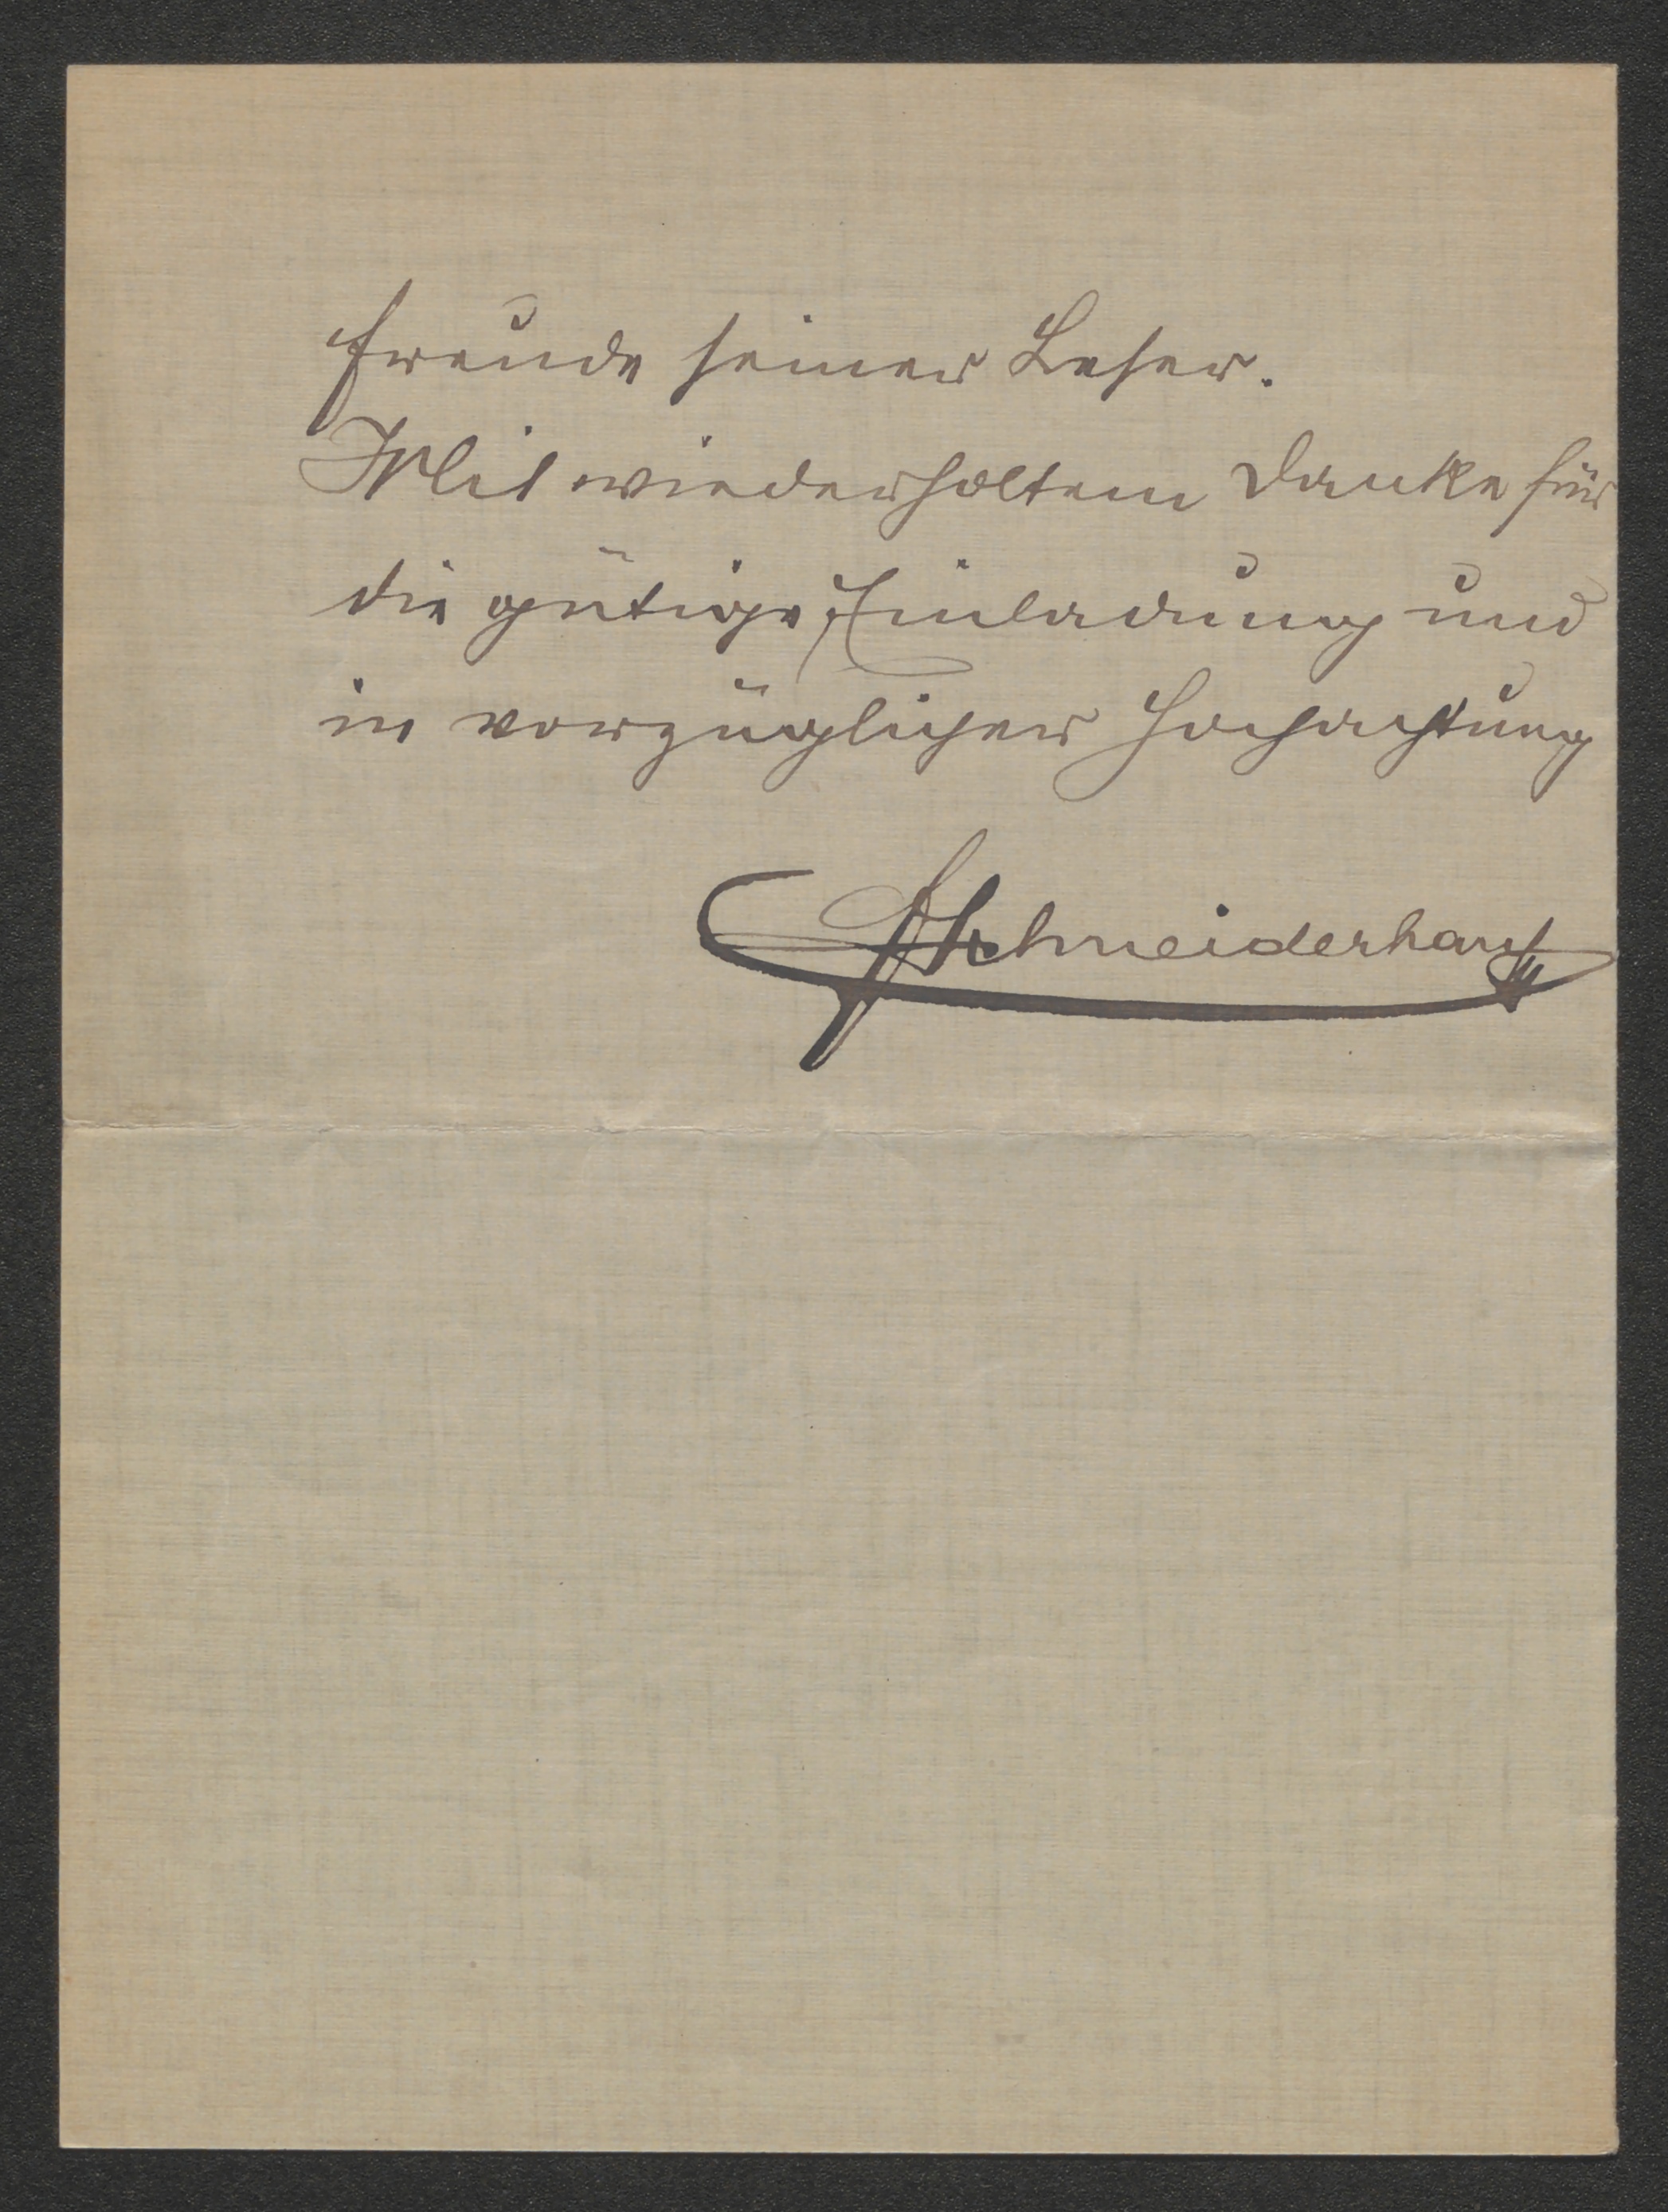 Freude seiner Leser.
Mit wiederholtem Danke für
die gütige Einladung und
in vorzüglicher Hochachtung
Schneiderhan